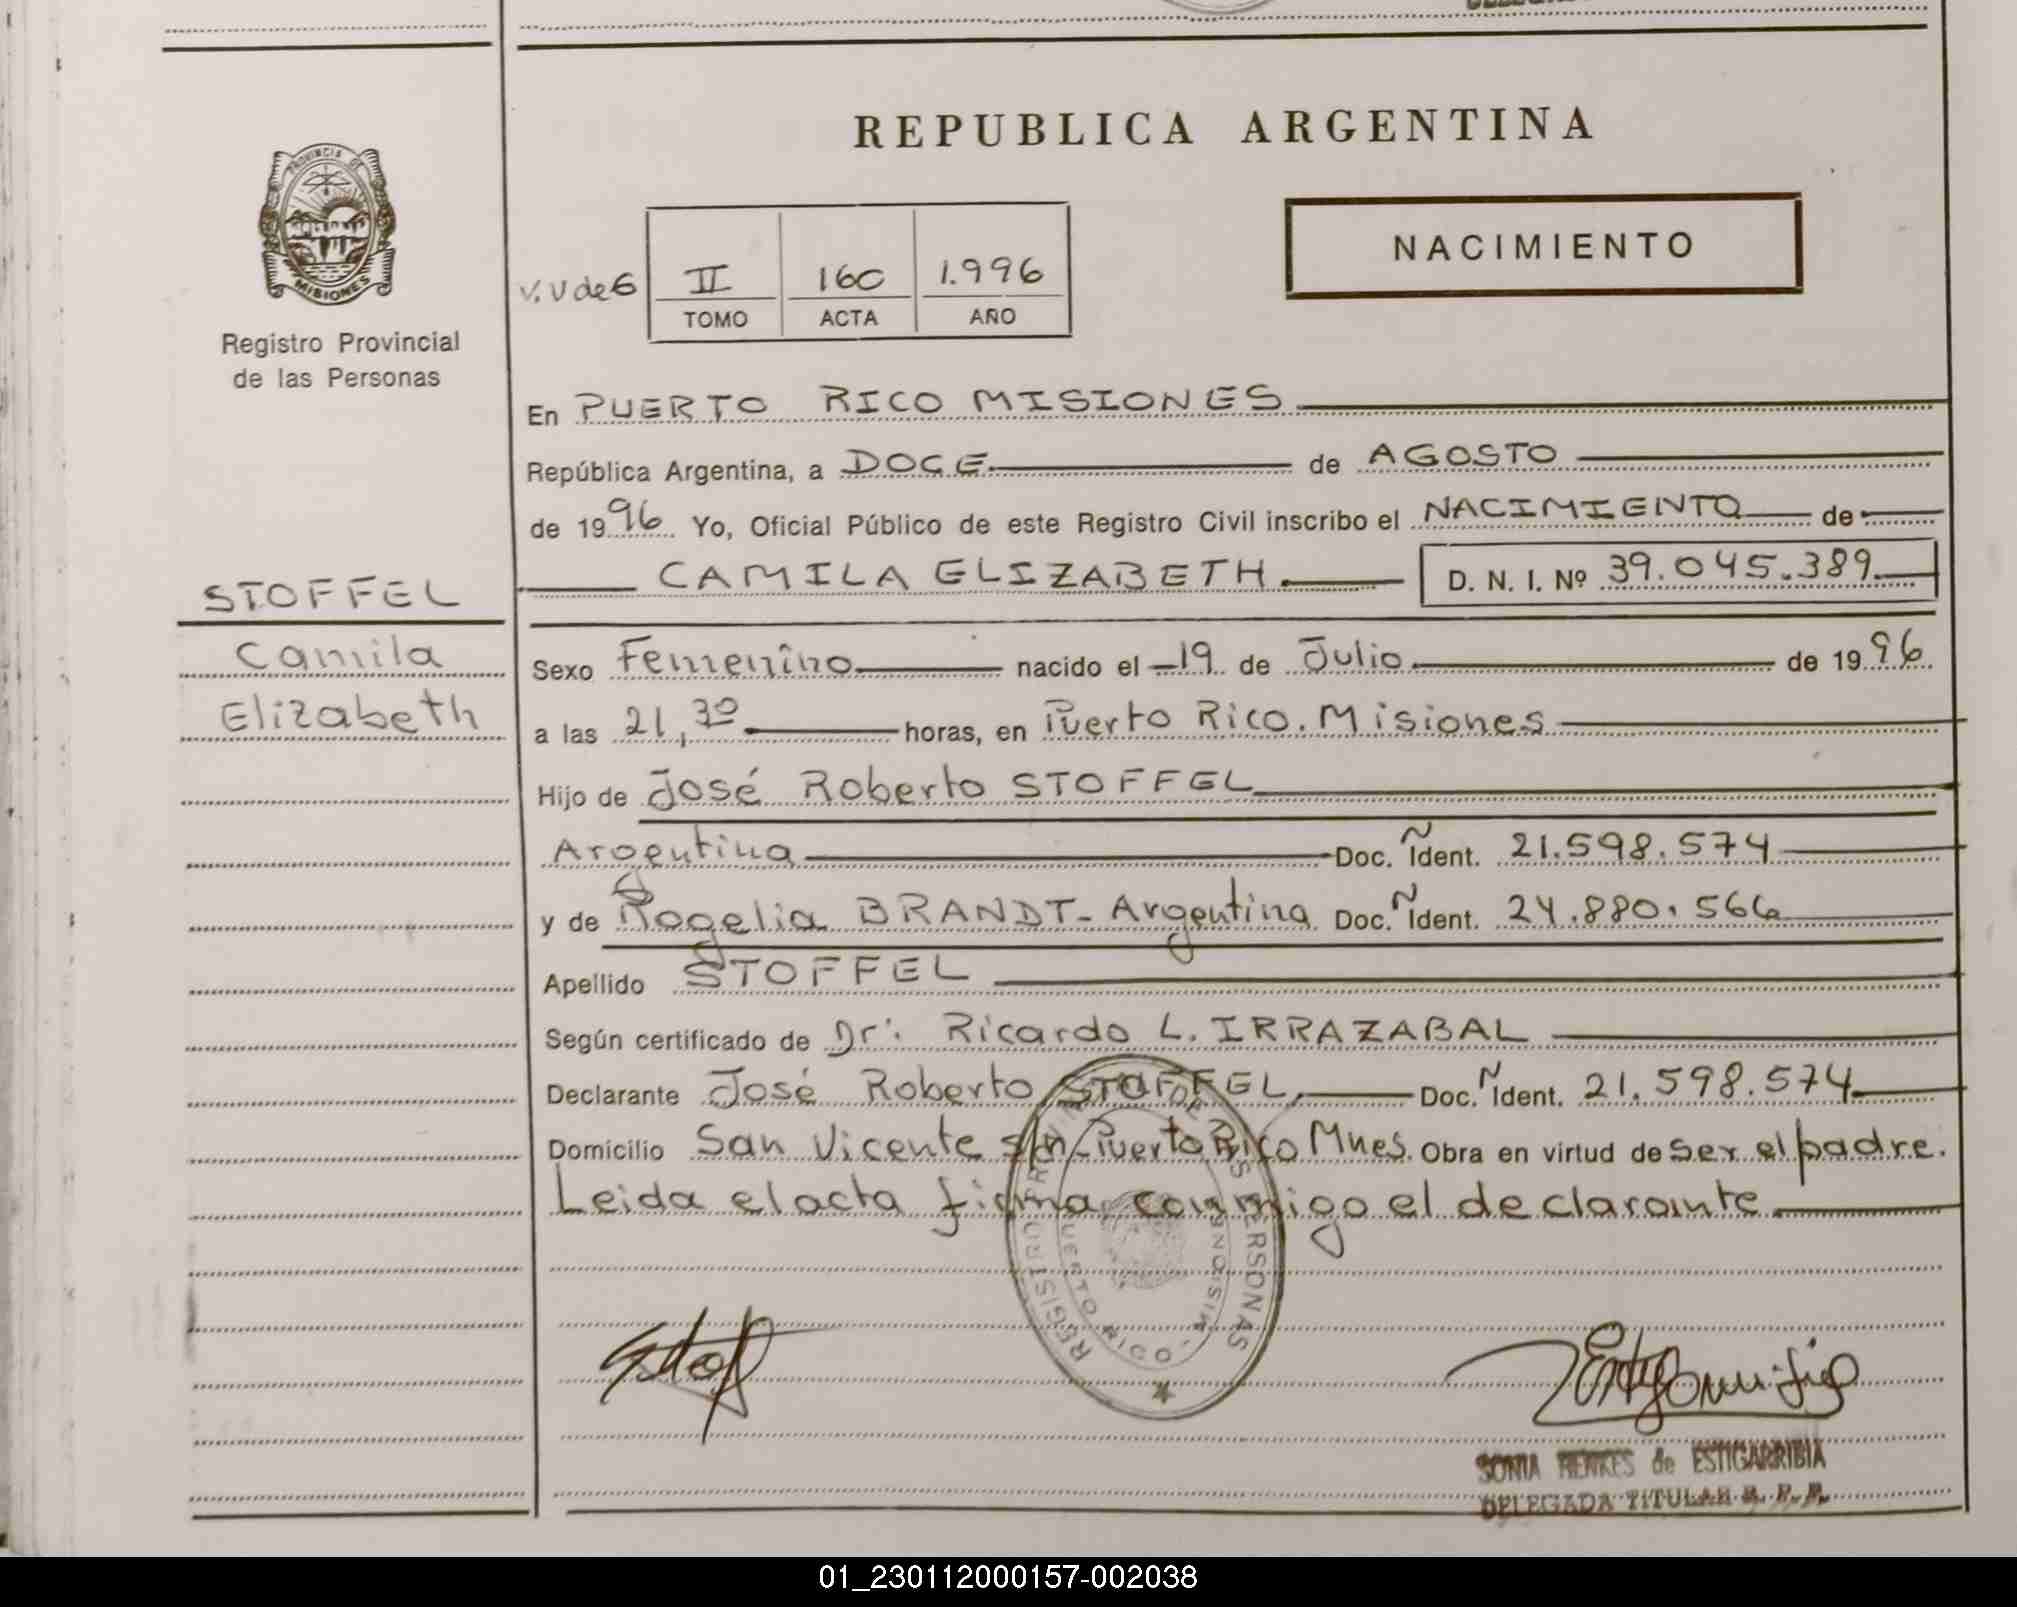 REPUBLICA ARGENTINA
PROVINCIA DE
MISIONES
Registro Provincial
de las Personas
NACIMIENTO
II 160 1.996
TOMO ACTA AÑO
En PUERTO RICO MISIONES
República Argentina, a DOCE de AGOSTO
de 1996 Yo, Oficial Público de este Registro Civil inscribo el NACIMIENTO de
CAMILA ELIZABETH D. N. I. Nº 39.045.389
STOFFEL
Camila
Elizabeth
Sexo Femenino nacido el 19 de Julio de 1996
a las 21,30 horas, en Puerto Rico. Misiones
Hijo de José Roberto STOFFEL
Argentina Doc. Ident. 21.598.574
y de Rogelia BRANDT - Argentina Doc. Ident. 24.880.566
Apellido STOFFEL
Según certificado de Dr. Ricardo L. IRRAZABAL
Declarante José Roberto STOFFEL Doc. Ident. 21.598.574
Domicilio San Vicente s/n Puerto Rico Mnes. Obra en virtud de ser el padre.
Leida el acta firma conmigo el declarante
REGISTRO PROVINCIAL DE LAS PERSONAS
PUERTO RICO - MISIONES
SONIA de ESTIGARRIBIA
DELEGADA TITULAR R. P. P.
01_230112000157-002038